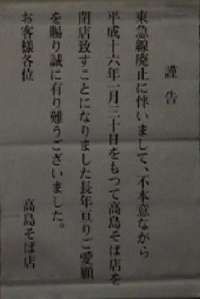 謹告
東急線廃止に伴いまして、不本意ながら
平成十六年一月三十日をもって高島そば店を
閉店致すことになりました長年亘りご愛顧
を賜り誠に有り難うございました。
お客様各位
高島そば店